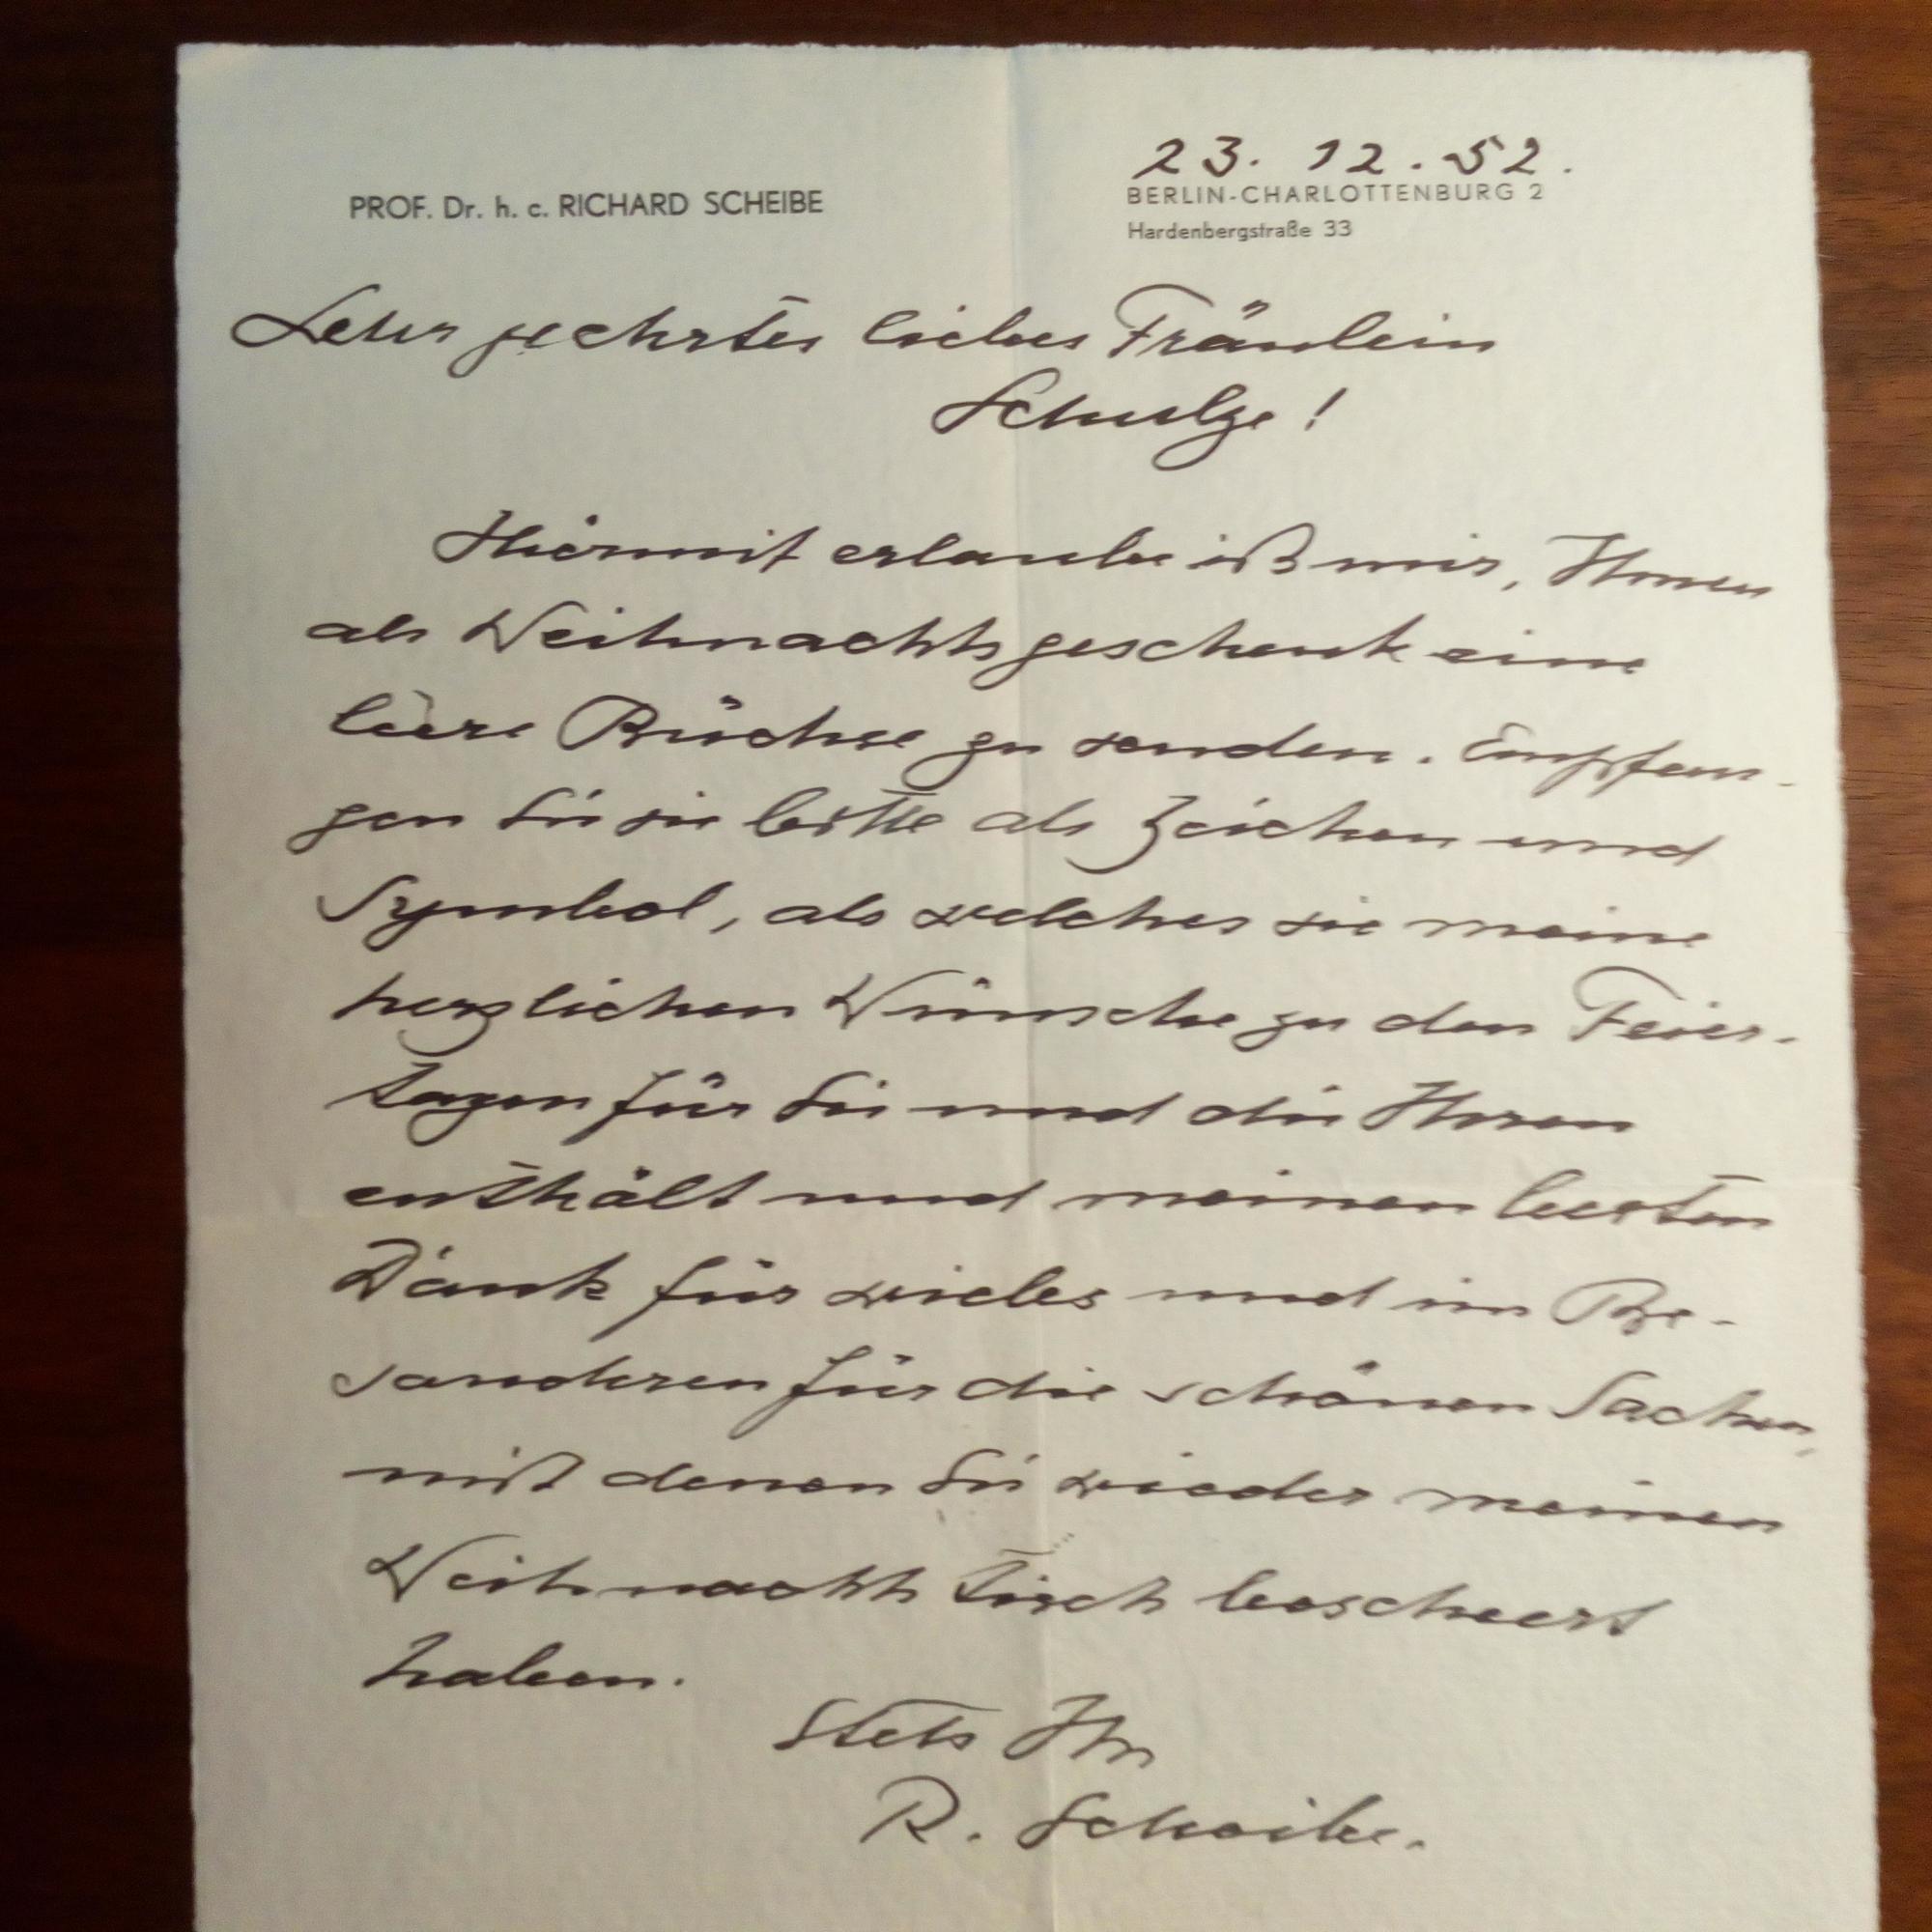 23. 12. 52.
PROF. Dr. h. c. RICHARD SCHEIBE
BERLIN-CHARLOTTENBURG 2
Hardenbergstraße 33
Sehr geehrtes liebes Fräulein
Schulze!
Hiermit erlaube ich mir, Ihnen
als Weihnachtsgeschenk eine
leere Büchse zu senden. Empfan-
gen Sie sie bitte als Zeichen und
Symbol, als welches sie meine
herzlichen Wünsche zu den Feier-
tagen für Sie und die Ihren
enthält und meinen besten
Dank für vieles und im Be-
sonderen für die schönen Sachen,
mit denen Sie wieder meinen
Weihnachtstisch bescheert
haben.
Stets Ihr
R. Scheibe.